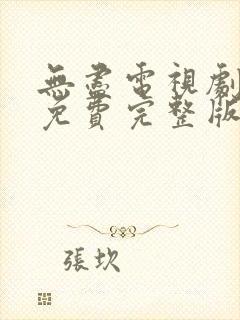 無盡電視劇
免費完整版
張坎